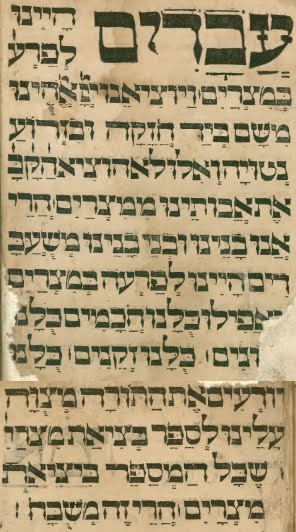 עֲבָדִים היינו
לפרע
במצרים ויוציאנו יי אלהינו
משם ביד חזקה ובזרוע
נטויה ואלו לא הוציא הקב
את אבותינו ממצרים הרי
אנו בנינו ובני בנינו משעב
דים היינו לפרעה במצרים
ואפילו כלנו חכמים כלנו
ונים כלנו זקנים כלנו
יודעים את התורה מצוה
עלינו לספר בציאת מצרי
שכל המספר ביציאת
מצרים הרי זה משבח :